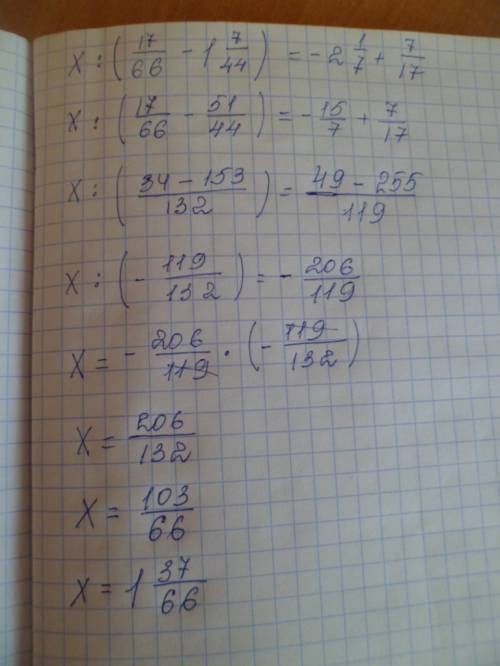 X : (17/66 - 1 7/44) = - 2 1/7 + 7/17
X : (17/66 - 51/44) = - 15/7 + 7/17
X : ((34 - 153)/132) = (49 - 255)/119
X : (- 119/132) = - 206/119
X = - 206/119 · (- 119/132)
X = 206/132
X = 103/66
X = 1 37/66